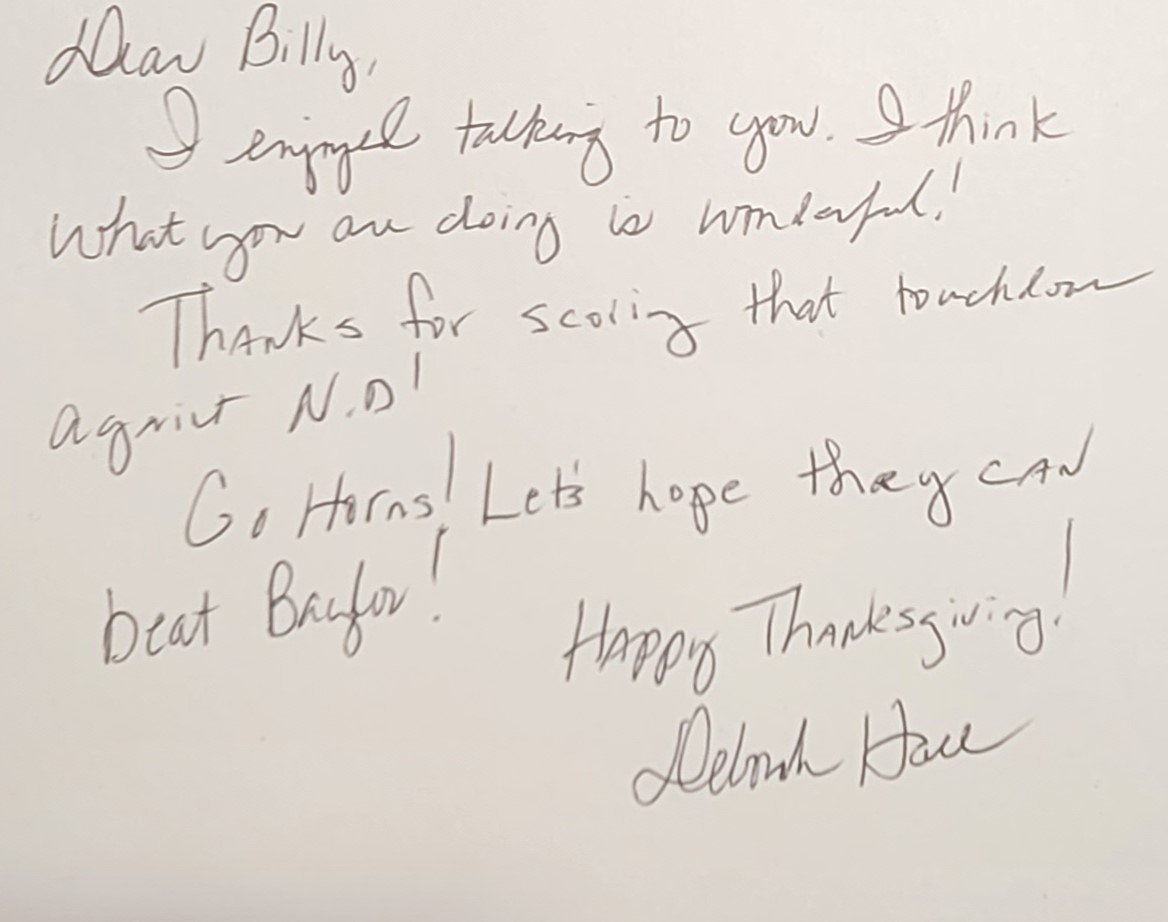 Dear Billy,
I enjoyed talking to you. I think
what you are doing is wonderful!
Thanks for scoring that touchdown
against N.D!
Go Horns! Let's hope they CAN
beat Baylor!
Happy Thanksgiving!
Deborah